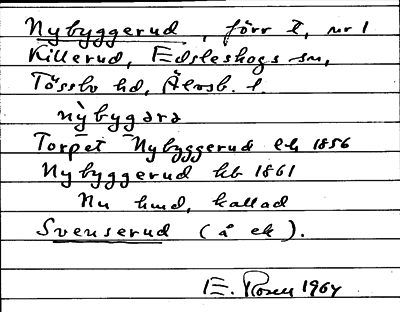 Nybyggerud, förr t, nr 1
Killerud, Edsleshogs sn,
Tössbo hd, Älvsb. l.
nỳbygara
Torpet Nybyggerud lh 1856
Nybyggerud kb 1861
Nu hmd, kallad
Svenserud (å ek).
E. Rosen 1964